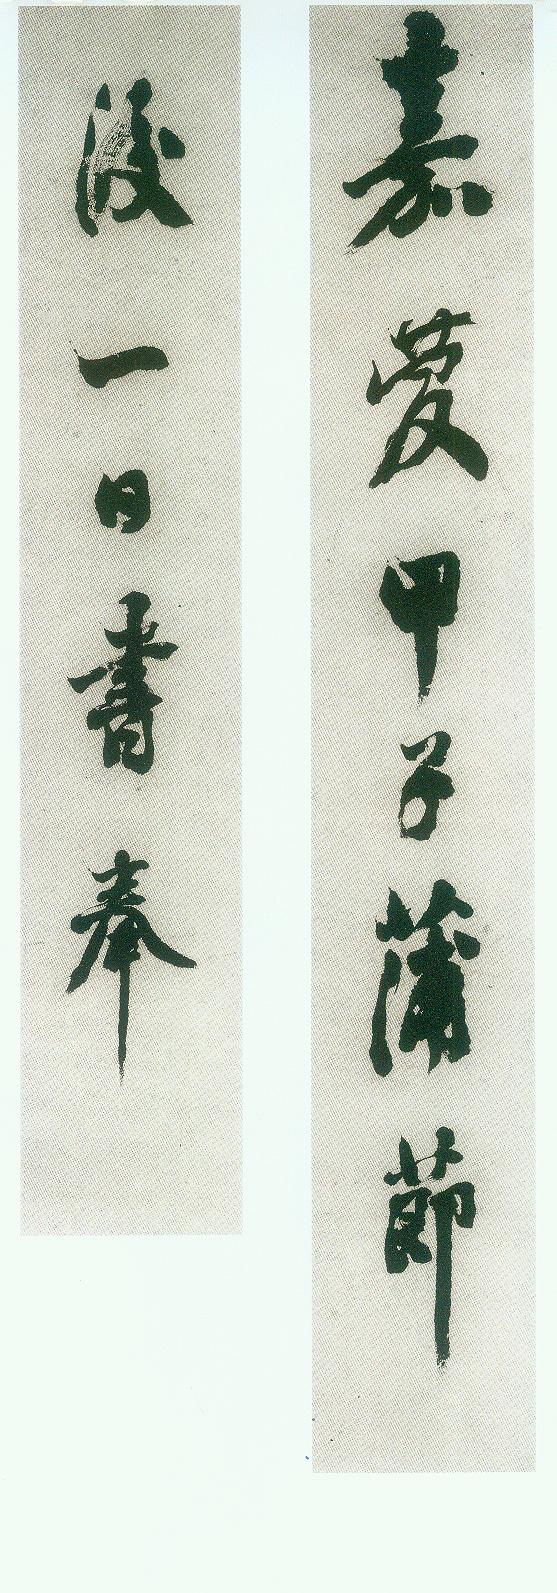 嘉慶甲子蒲節
後一日書奉